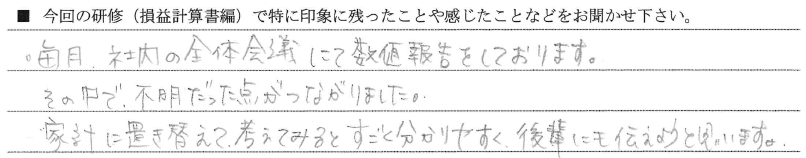 ■ 今回の研修（損益計算書編）で特に印象に残ったことや感じたことなどをお聞かせ下さい。
。毎月、社内の全体会議にて数値報告をしております。
その中で、不明だった点がつながりました。
家計に置き替えて、考えてみるとすごく分かりやすく、後輩にも伝えようと思います。